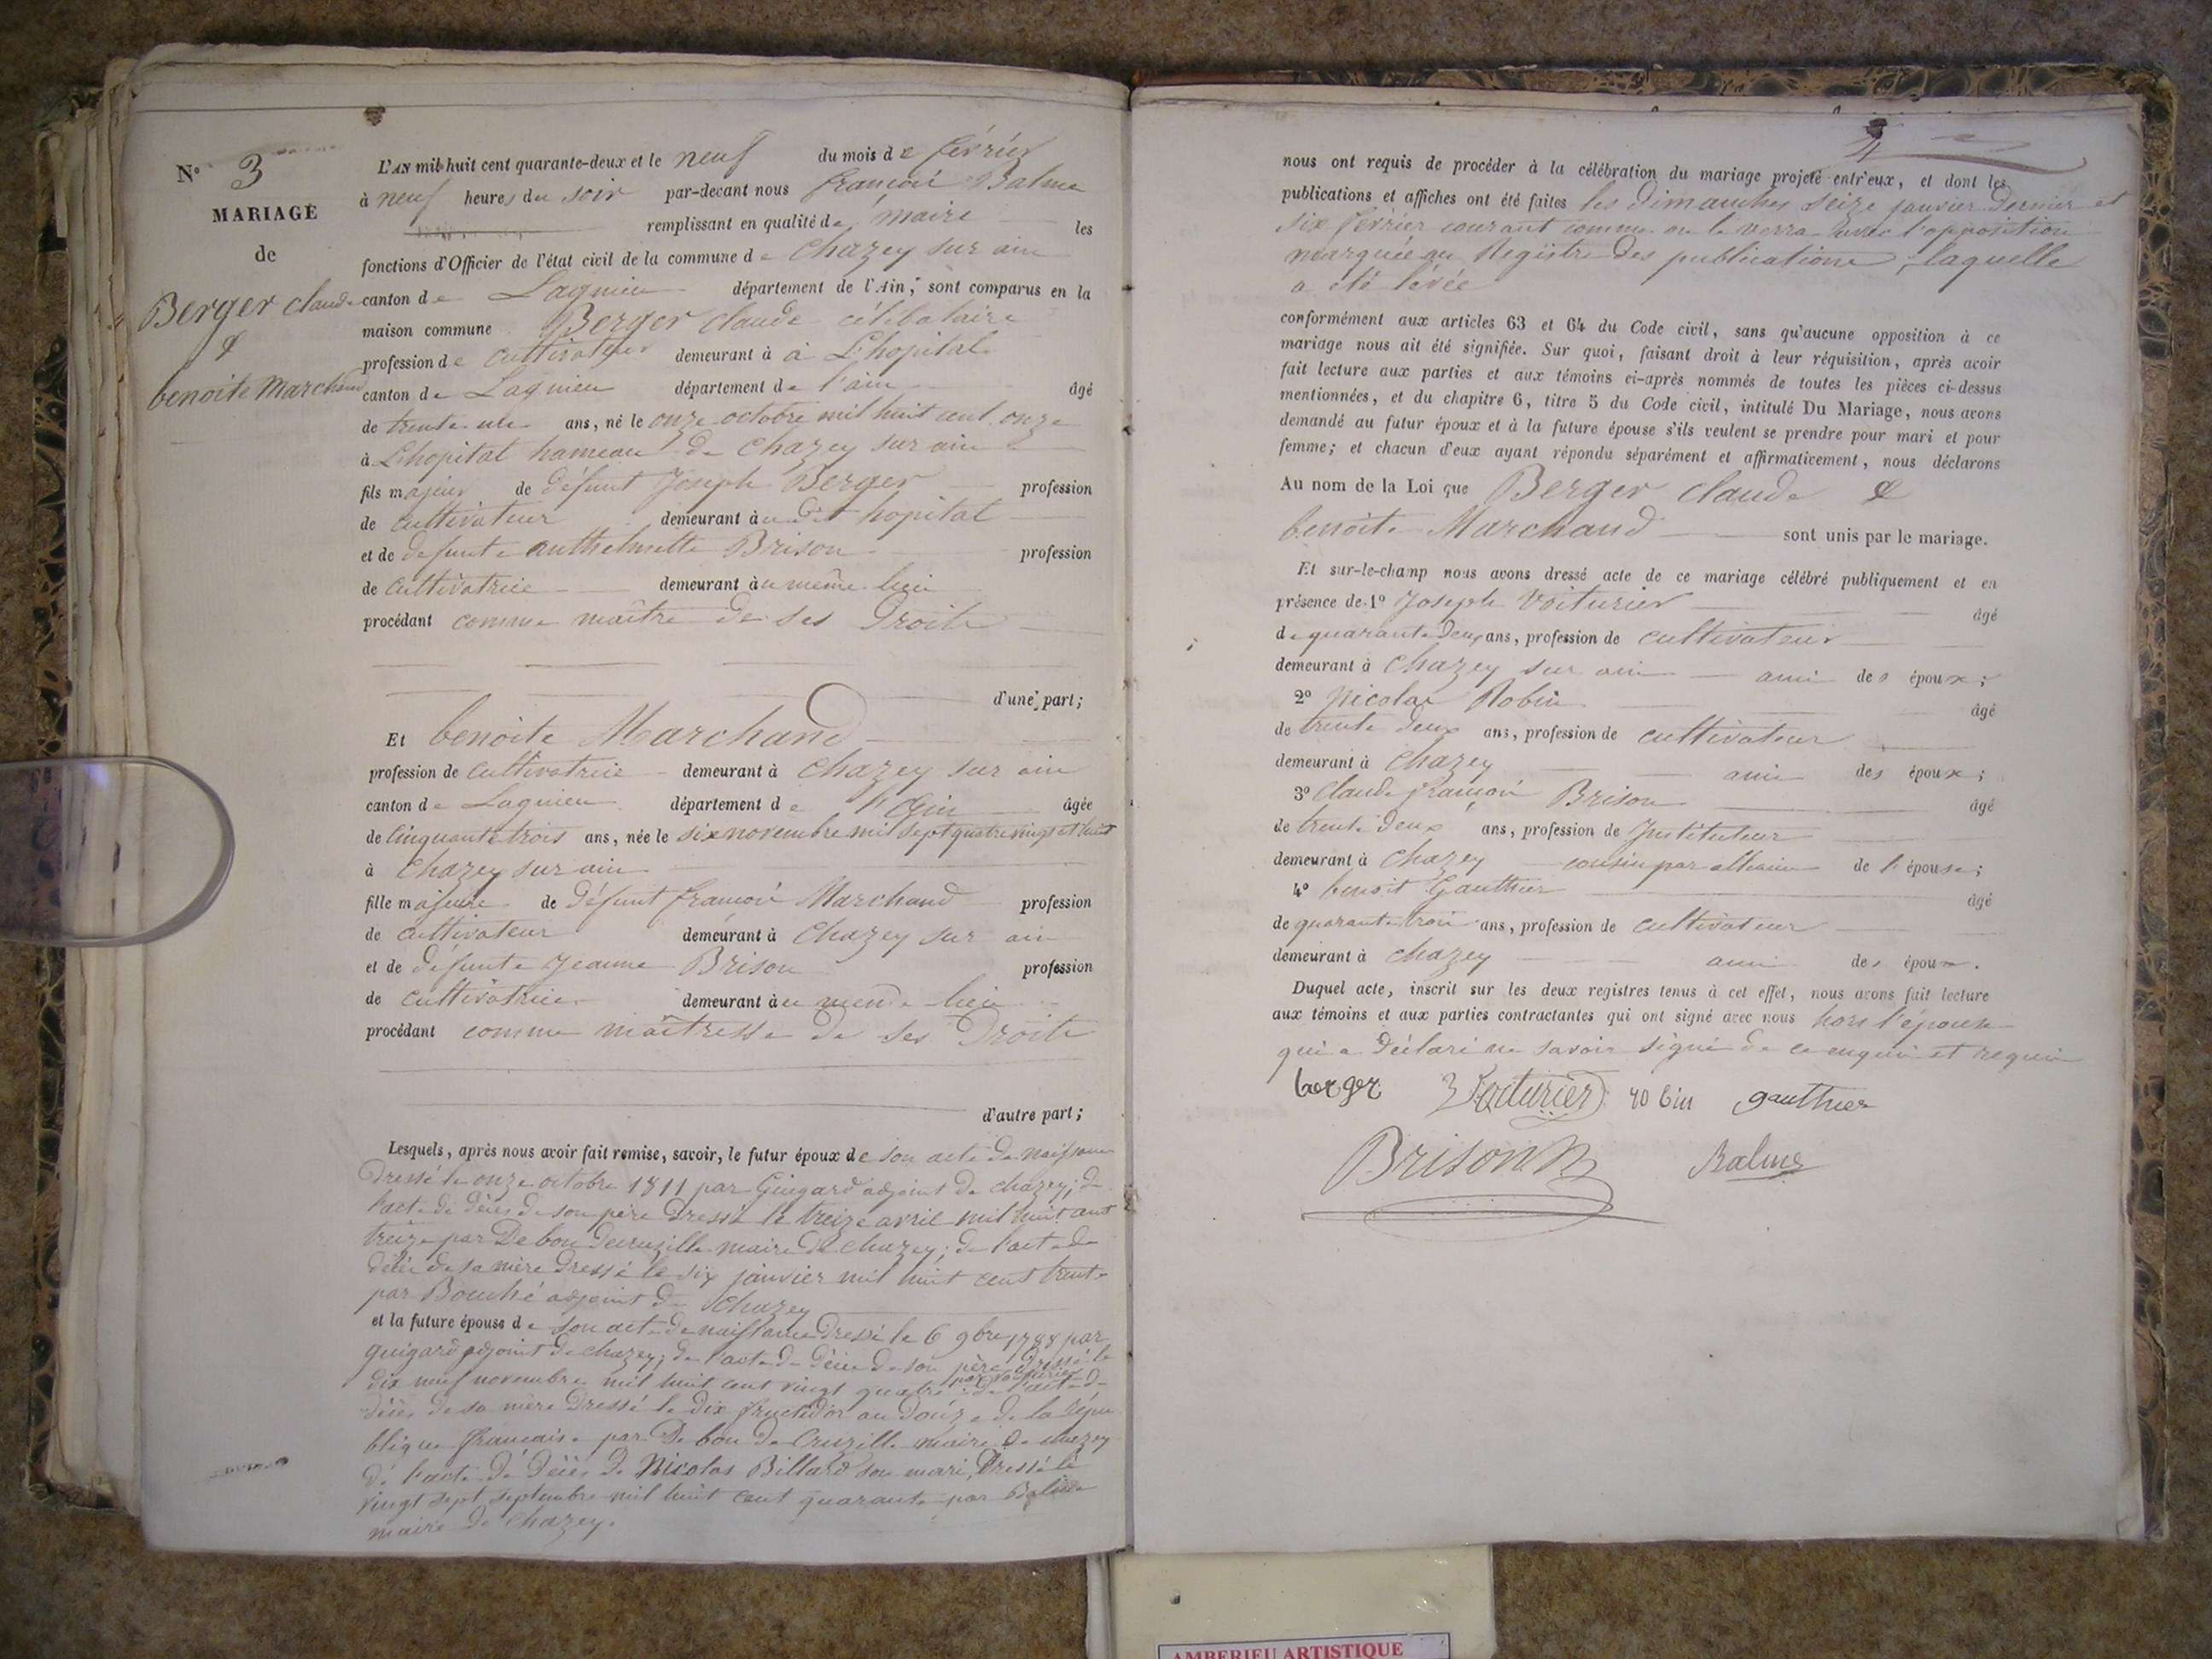 N° 3
MARIAGE
de
Berger claude
&
benoite Marchand
L'AN mil huit cent quarante-deux et le neuf du mois de février
à neuf heures du soir par-devant nous françois Balme
remplissant en qualité de maire les
fonctions d'Officier de l'état civil de la commune de Chazey sur ain
canton de Lagnieu département de l'Ain, sont comparus en la
maison commune Berger claude célibataire
profession de cultivateur demeurant à à L'hopital
canton de Lagnieu département de l'ain âgé
de trente un ans, né le onze octobre mil huit cent onze
à L'hopital hameau de Chazey sur ain
fils majeur de défunt Joseph Berger profession
de cultivateur demeurant au dit hopital
et de defunte anthelmette Brison profession
de cultivatrice demeurant au même lieu
procédant comme maître de ses Droits
d'une part;
Et benoite Marchand
profession de cultivatrice demeurant à Chazey sur ain
canton de Lagnieu département de l'Ain âgée
de Cinquante trois ans, née le six novembre mil sept quatre vingt et huit
à Chazey sur ain
fille majeure de défunt françois Marchand profession
de cultivateur demeurant à Chazey sur ain
et de défunte Jeanne Brison profession
de cultivatrice demeurant au meme lieu
procédant comme maîtresse de ses Droits
d'autre part;
Lesquels, après nous avoir fait remise, savoir, le futur époux de son acte de naissance
Dressé le onze octobre 1811 par Guigard adjoint de chazey; de
l'acte de décès de son père Dressé le treize avril mil huit cent
treize par De bon maire de Chazey; de l'acte de
décès de sa mère Dressé le six janvier mil huit cent trente
par Bouché adjoint de Chazey
et la future épouse de son acte de naissance Dressé le 6 9bre 1788 par
guigard adjoint de chazey; de l'acte de décès de son père Dressé le
dix neuf novembre mil huit cent vingt quatre par voiturier de l'acte de
décès de sa mère Dressé le dix fructidor an douze de la répu
blique francaise par De bon de Cruzille maire de chazey
de l'acte de décès de Nicolas Billard son mari, Dressé le
vingt sept septembre mil huit cent quarante par Balme
maire de Chazey.
nous ont requis de procéder à la célébration du mariage projeté entr'eux, et dont les
publications et affiches ont été faites les dimanches seize janvier dernier et
six février courant comme on le verra avec l'opposition
marquée au Registre des publications, laquelle
a été levée
conformément aux articles 63 et 64 du Code civil, sans qu'aucune opposition à ce
mariage nous ait été signifiée. Sur quoi, faisant droit à leur réquisition, après avoir
fait lecture aux parties et aux témoins ci-après nommés de toutes les pièces ci-dessus
mentionnées, et du chapitre 6, titre 5 du Code civil, intitulé Du Mariage, nous avons
demandé au futur époux et à la future épouse s'ils veulent se prendre pour mari et pour
femme; et chacun d'eux ayant répondu séparément et affirmativement, nous déclarons
Au nom de la Loi que Berger claude &
benoite Marchand sont unis par le mariage.
Et sur-le-champ nous avons dressé acte de ce mariage célébré publiquement et en
présence de 1° Joseph Voiturier âgé
de quarante deux ans, profession de cultivateur
demeurant à Chazey sur ain ami des époux;
2° Nicolas Robin âgé
de trente deux ans, profession de cultivateur
demeurant à Chazey ami des époux;
3° Claude françois Brison âgé
de trente deux ans, profession de Instituteur
demeurant à Chazey cousin par alliance de l'épouse;
4° benoit Gauthier âgé
de quarante trois ans, profession de cultivateur
demeurant à chazey ami des époux.
Duquel acte, inscrit sur les deux registres tenus à cet effet, nous avons fait lecture
aux témoins et aux parties contractantes qui ont signé avec nous hors l'épouse
qui a déclaré ne savoir signé de ce enquis et requis
berger J Voiturier robin gauthier
Brison Balme
AMBERIEU ARTISTIQUE